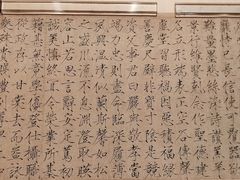 靡恃己長信使可覆器欲
難量墨悲絲染詩讚羔羊
景行維賢克念作聖德建
名立形端表正空谷傳聲
虛堂習聽禍因惡積福緣
善慶尺璧非寶寸陰是競
資父事君曰嚴與敬孝當
竭力忠則盡命臨深履薄
夙興溫凊似蘭斯馨如松
之盛川流不息淵澄取映
容止若思言辭安定篤初
誠美慎終宜令榮業所基
籍甚無竟學優登仕攝職
從政存以甘棠去而益詠